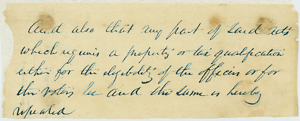 And also that any part of said acts
which requires a property or tax qualification
either for the eligibility of the officers or for
the voters be and the same is hereby
repealed